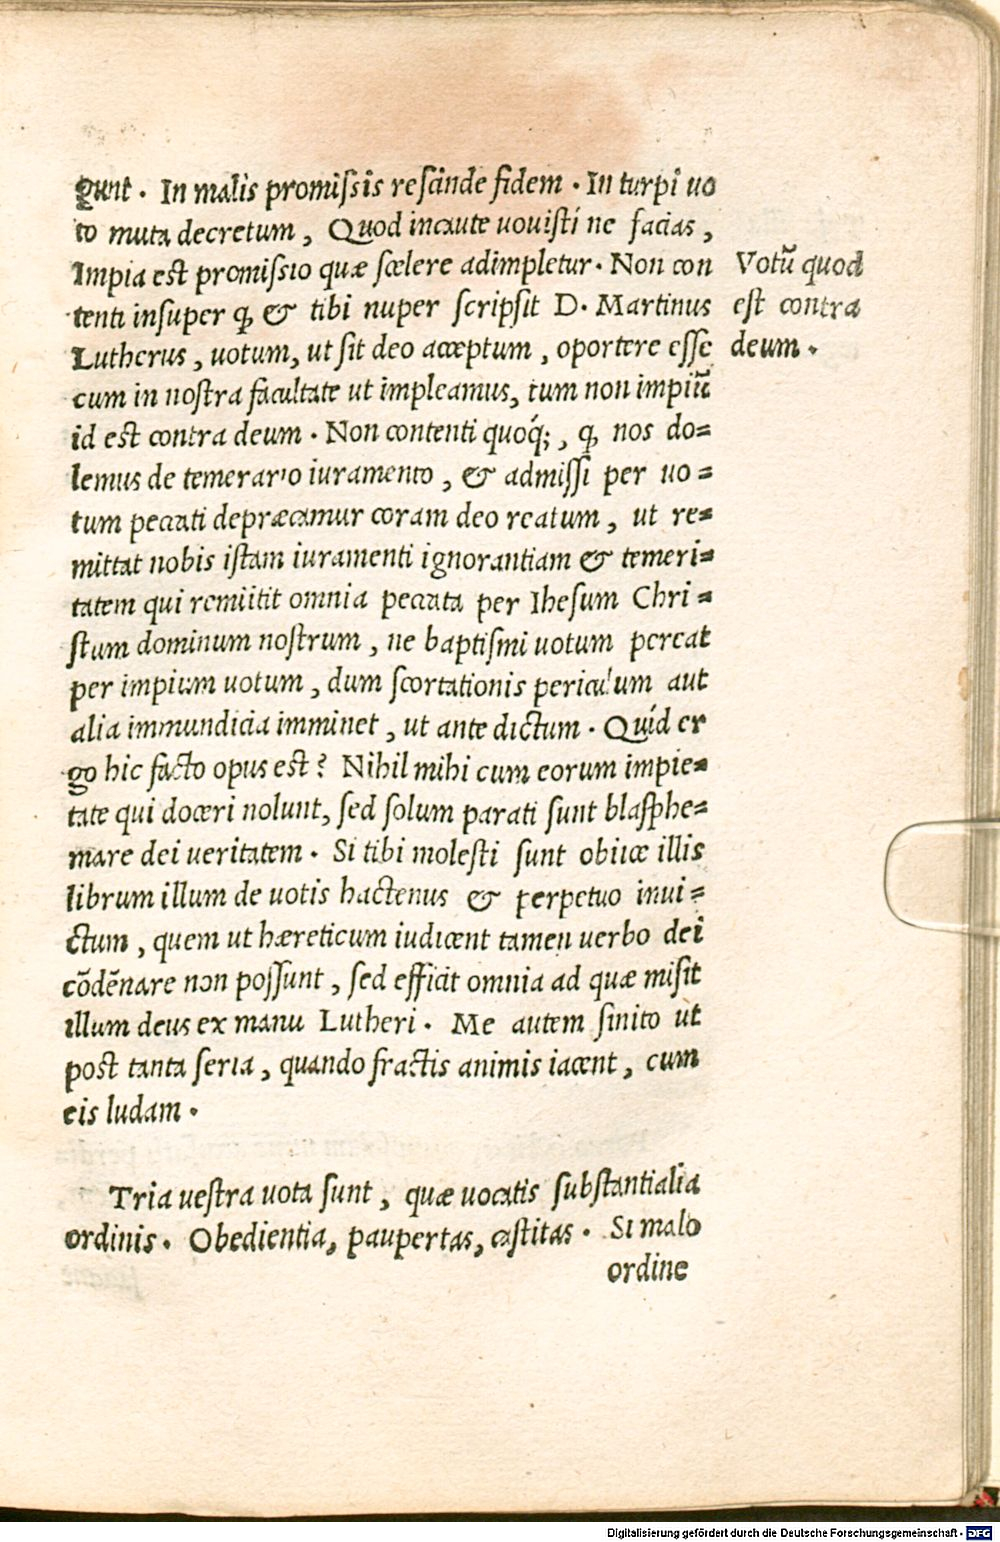 gunt. In malis promiſsis reſcinde fidem. In turpi uo
to muta decretum, Quod incaute uouiſti ne facias,
Impia est promiſsio quæ ſcelere adimpletur. Non con
tenti inſuper ꝙ & tibi nuper ſcripſit D. Martinus
Lutherus, uotum, ut ſit deo acceptum, oportere eſſe
cum in noſtra facultate ut impleamus, tum non impiũ
id est contra deum. Non contenti quoq́;, ꝙ nos do=
lemus de temerario iuramento, & admiſſi per uo=
tum peccati depræcamur coram deo reatum, ut re=
mittat nobis iſtam iuramenti ignorantiam & temeri=
tatem qui remittit omnia peccata per Iheſum Chri=
ſtum dominum noſtrum, ne baptiſmi uotum pereat
per impium uotum, dum ſcortationis periculum aut
alia immundicia imminet, ut ante dictum. Quid er
go hic facto opus est? Nihil mihi cum eorum impie=
tate qui doceri nolunt, ſed ſolum parati ſunt blaſphe=
mare dei ueritatem. Si tibi moleſti ſunt obiice illis
librum illum de uotis hactenus & perpetuo inui=
ctum, quem ut hæreticum iudicent tamen uerbo dei
cõdẽnare non poſſunt, ſed efficit omnia ad quæ miſit
illum deus ex manu Lutheri. Me autem ſinito ut
post tanta ſeria, quando fractis animis iacent, cum
eis ludam.
Votũ quod
est contra
deum.
Tria ueſtra uota ſunt, quæ uocatis ſubſtantialia
ordinis. Obedientia, paupertas, caſtitas. Si malo
ordine
Digitalisierung gefördert durch die Deutsche Forschungsgemeinschaft - DFG